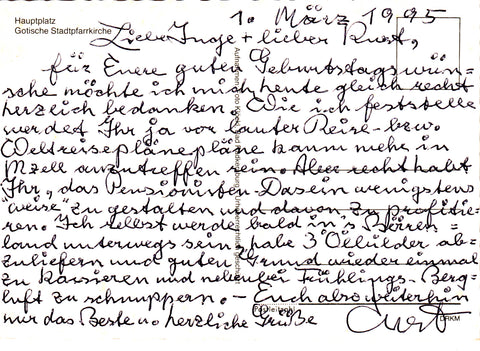 Hauptplatz
Gotische Stadtpfarrkirche
1. März 1995
Liebe Inge + lieber Kurt,
für Euere guten Geburtstagswün=
sche möchte ich mich heute gleich recht
herzlich bedanken. Wie ich feststelle
werdet Ihr ja vor lauter Reise- bzw.
Weltreisepläne pläne kaum mehr in
Mzell anzutreffen sein. Aber recht habt
Ihr, das Pensionisten-Dasein wenigstens
"weise" zu gestalten und davon zu profitie=
ren. Ich selbst werde bald in's Bären=
land unterwegs sein, habe 3 Ölbilder ab=
zuliefern und guten Grund wieder einmal
zu kassieren und nebenbei Frühlings-Berg=
luft zu schnuppern. – Euch also weiterhin
nur das Beste u. herzliche Grüße
DRKM